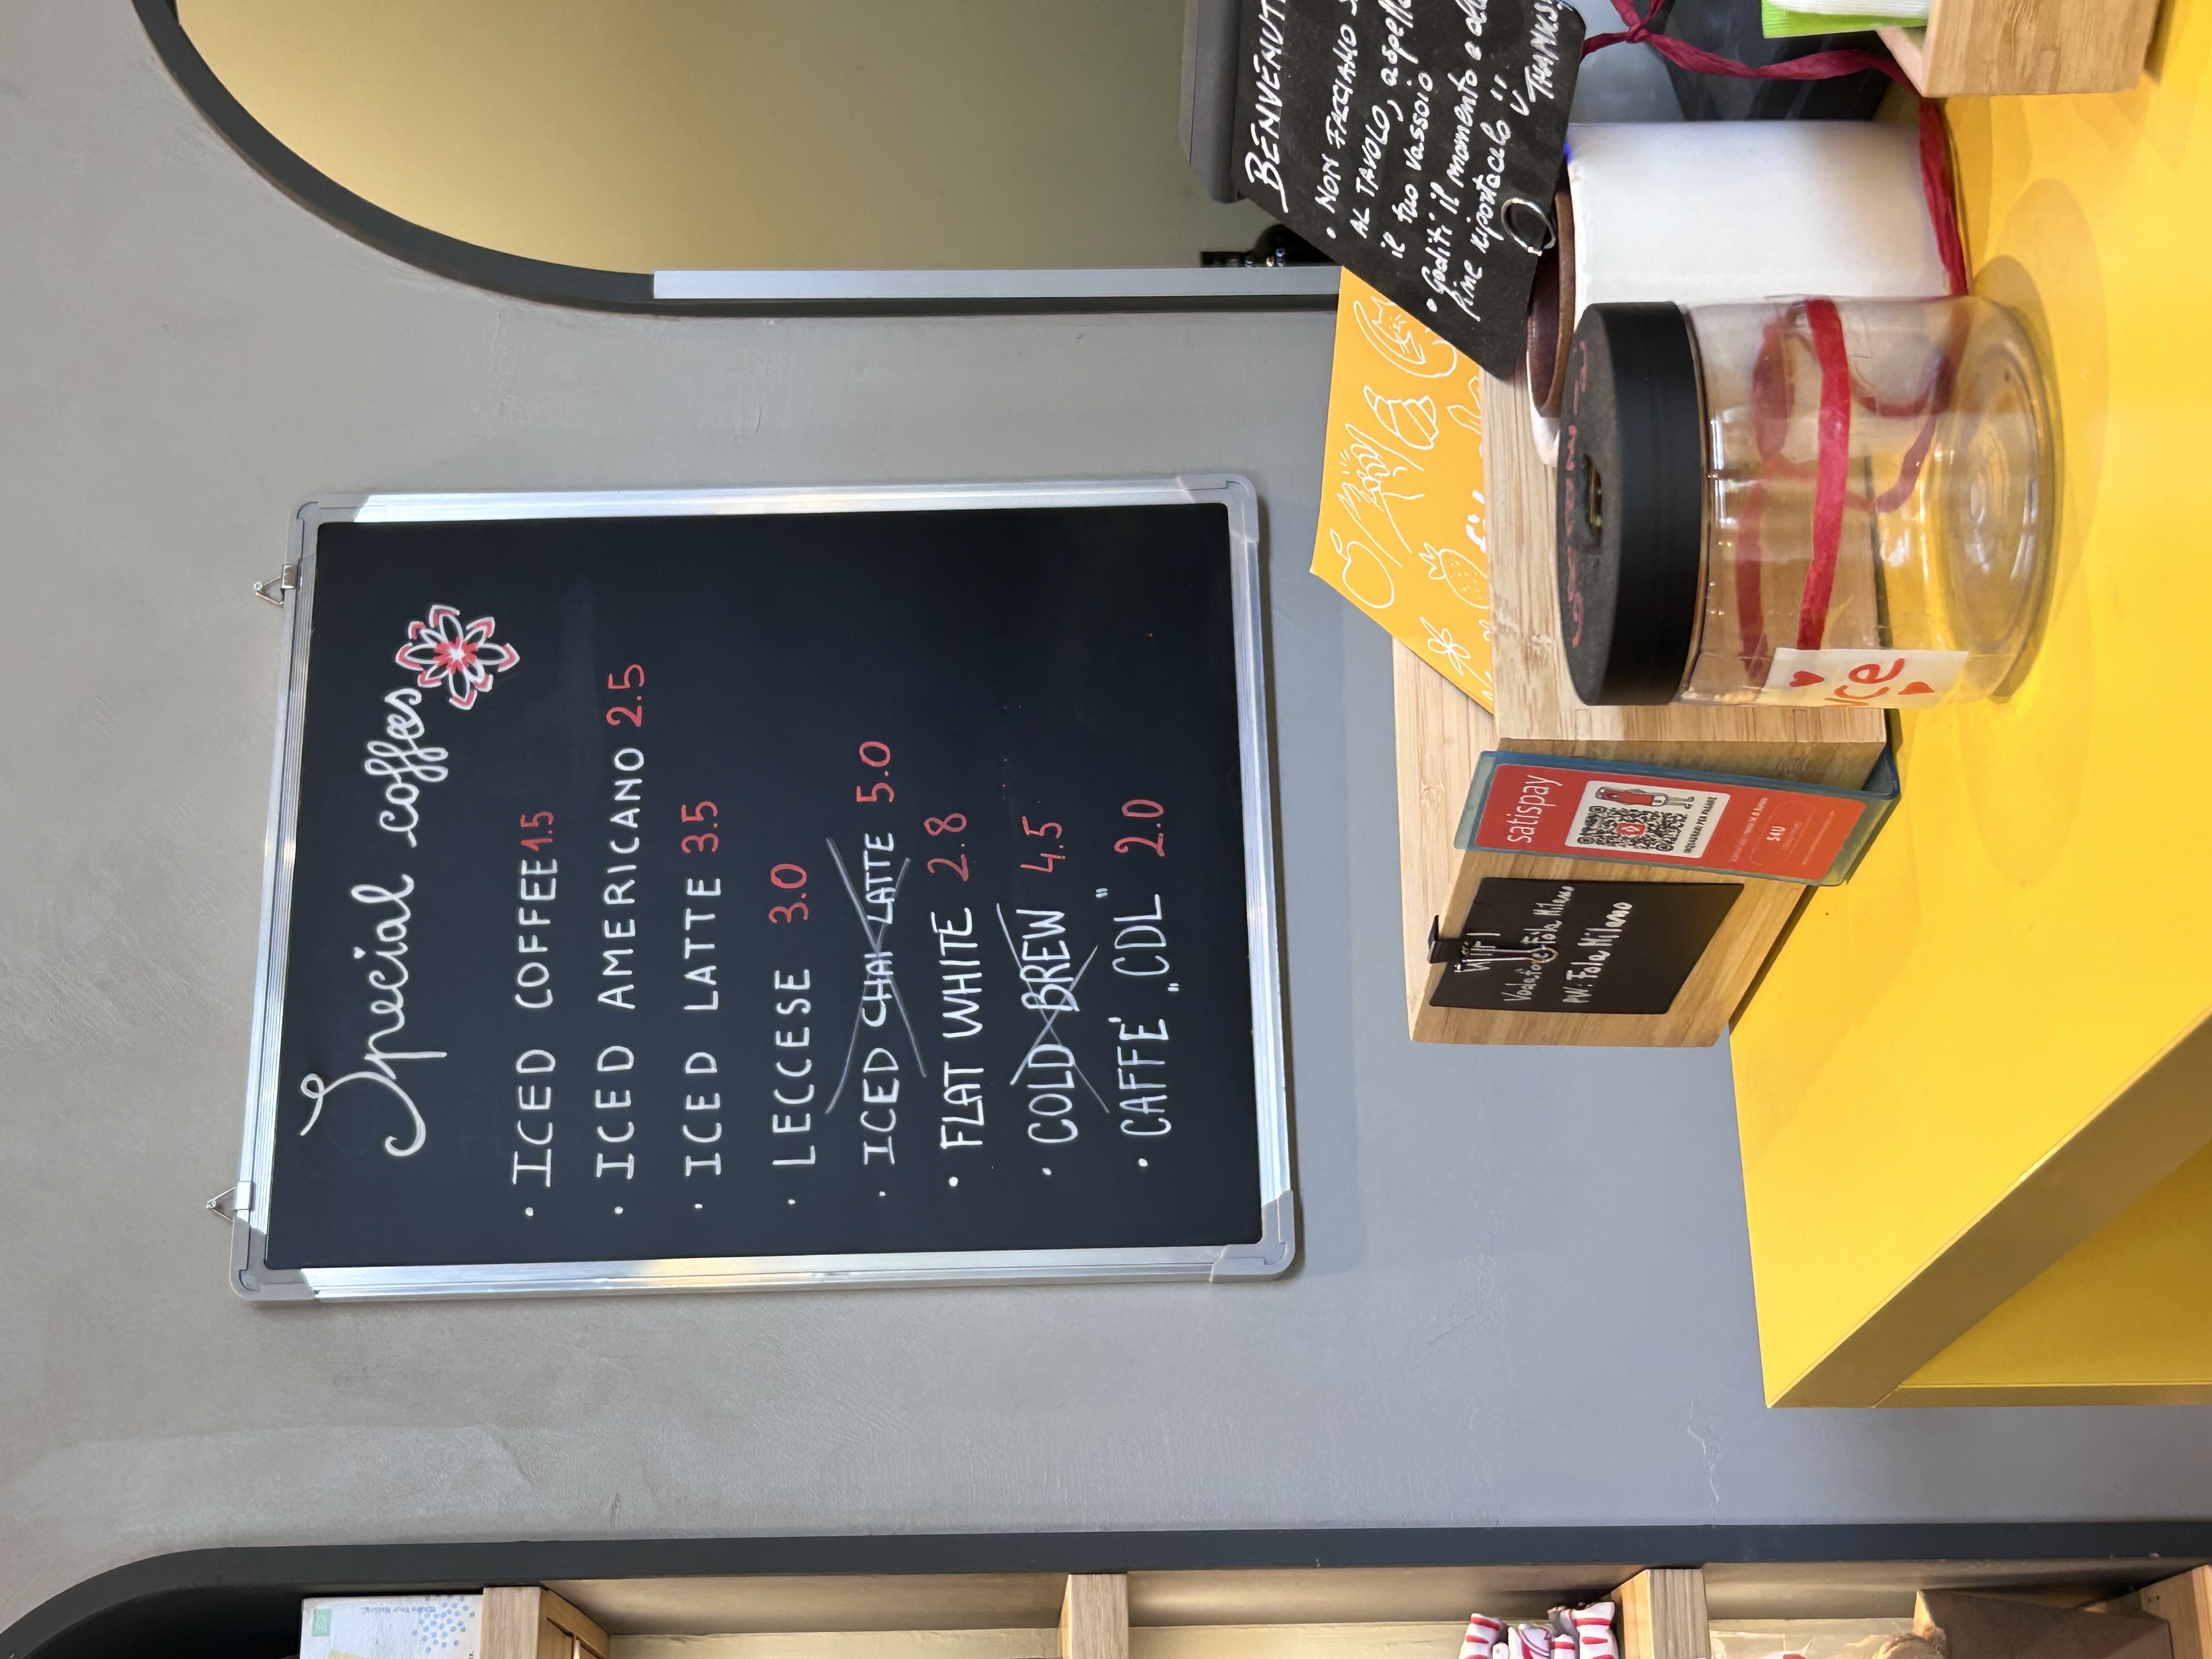 Special coffees
• ICED COFFEE 1.5
• ICED AMERICANO 2.5
• ICED LATTE 3.5
• LECCESE 3.0
• ICED CHAI LATTE 5.0
• FLAT WHITE 2.8
• COLD BREW 4.5
• CAFFE' "CDL" 2.0
BENVENUT
• NON FACCIAMO S
AL TAVOLO, aspetta
il tuo vassoio
• Goditi il momento e alla
fine riportacelo
THANKS
WIFI
PW: Fola Milano
satispay
INQUADRAMI PER PAGARE
S4U